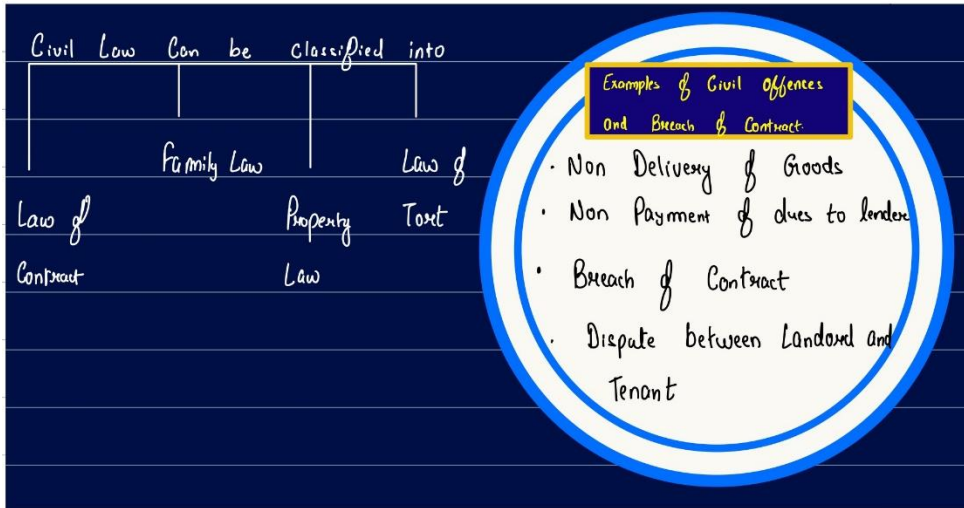 Civil Law Can be classified into
Family Law
Law of
Law of
Property
Tort
Contract
Law
Examples of Civil Offences
and Breach of Contract.
· Non Delivery of Goods
· Non Payment of dues to lender
· Breach of Contract
· Dispute between Landord and
Tenant